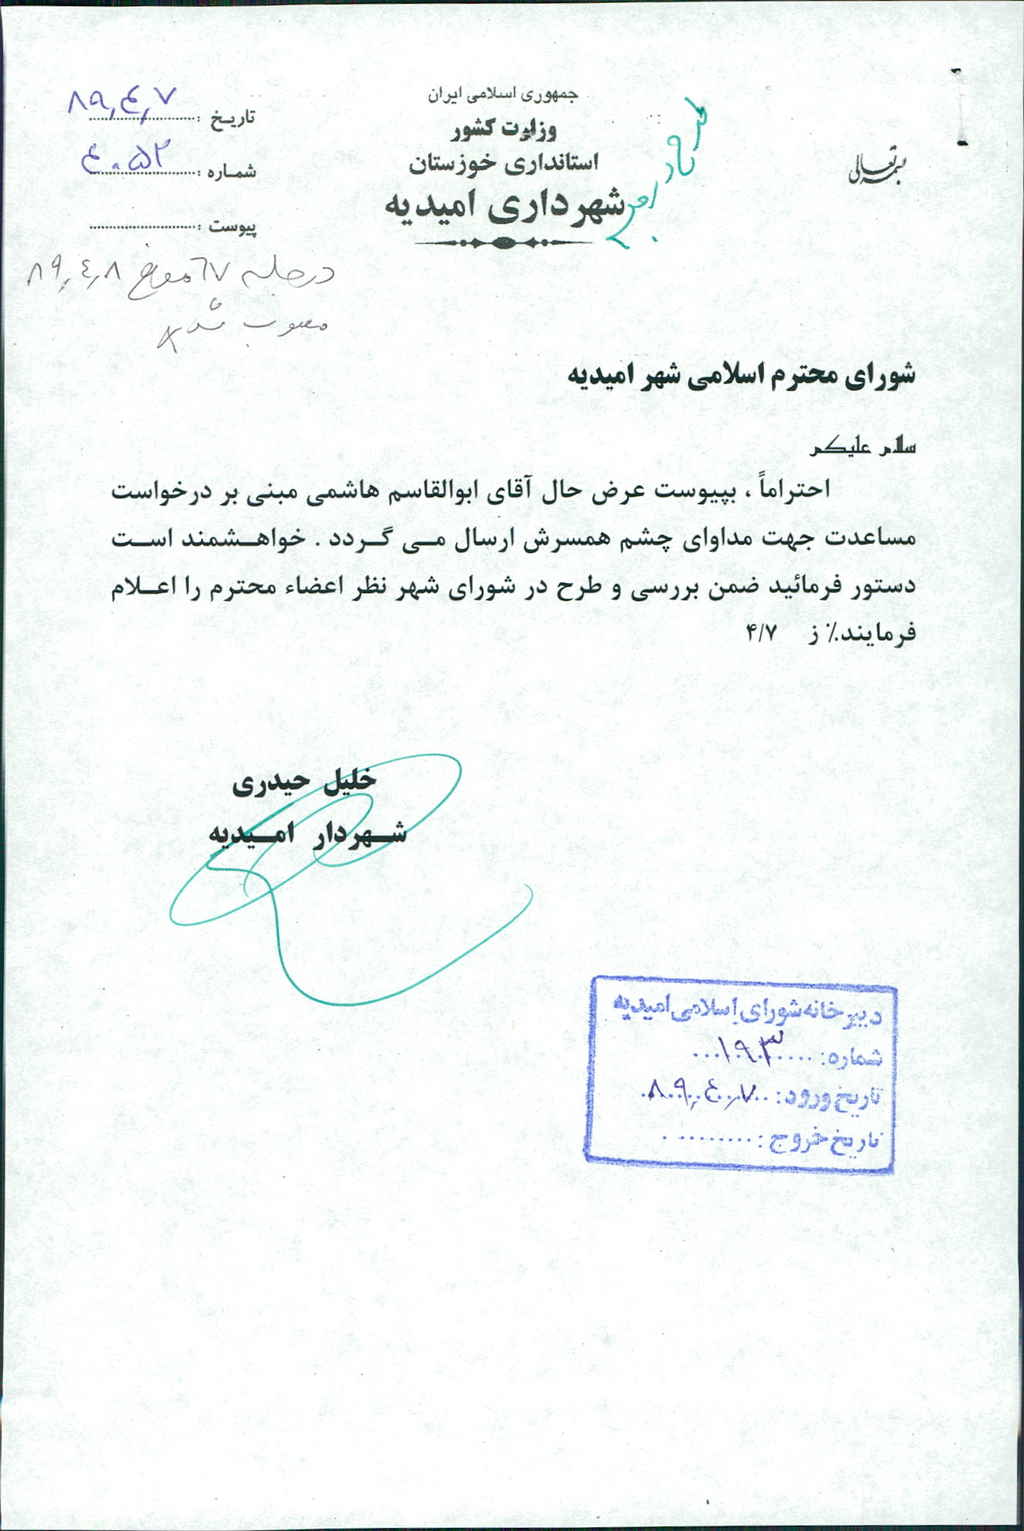 بسمه تعالی
جمهوری اسلامی ایران
وزارت کشور
استانداری خوزستان
شهرداری امیدیه
تاریخ : ۸۹٫۴٫۷
شماره : ۴۰۵۲
پیوست :
در جلسه ۶۷ مورخ ۸۹٫۴٫۸
مصوب شد
شورای محترم اسلامی شهر امیدیه
سلام علیکم
احتراماً ، بپیوست عرض حال آقای ابوالقاسم هاشمی مبنی بر درخواست
مساعدت جهت مداوای چشم همسرش ارسال می گردد . خواهشمند است
دستور فرمائید ضمن بررسی و طرح در شورای شهر نظر اعضاء محترم را اعلام
فرمایند٪ ز ۴/۷
خلیل حیدری
شهردار امیدیه
دبیرخانه شورای اسلامی امیدیه
شماره: ۱۹۳
تاریخ ورود: ۸۹٫۴٫۷
تاریخ خروج :